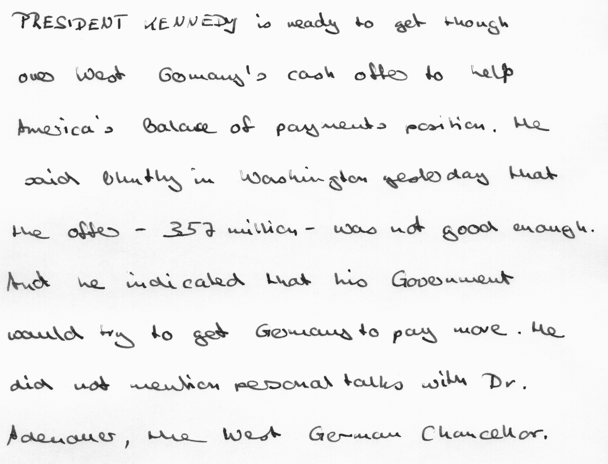 PRESIDENT KENNEDY is ready to get though
over West Germany's cash offer to help
America's balance of payments position. He
said bluntly in Washington yesterday that
the offer - 357 million - was not good enough.
And he indicated that his Government
would try to get Germany to pay more. He
did not mention personal talks with Dr.
Adenauer, the West German Chancellor.